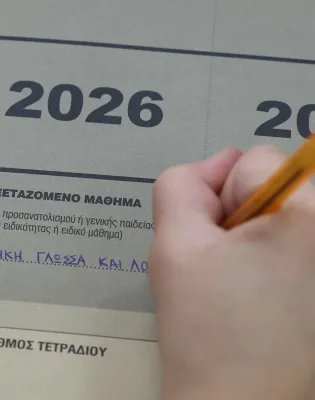 2026 20
ΕΤΑΖΟΜΕΝΟ ΜΑΘΗΜΑ
προσανατολισμού ή γενικής παιδείας
ειδικότητας ή ειδικό μάθημα)
ΙΚΗ ΓΛΩΣΣΑ ΚΑΙ ΛΟ
ΘΜΟΣ ΤΕΤΡΑΔΙΟΥ